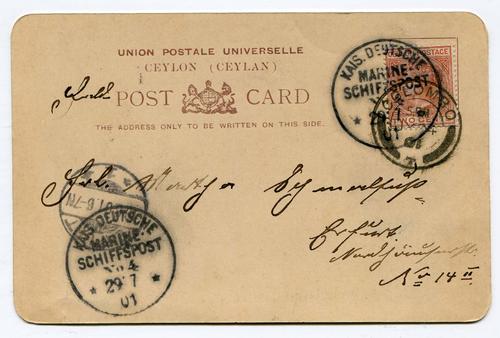 UNION POSTALE UNIVERSELLE
CEYLON (CEYLAN)
POST CARD
THE ADDRESS ONLY TO BE WRITTEN ON THIS SIDE.
KAIS. DEUTSCHE
MARINE-
SCHIFFSPOST
29
01
POSTAGE
Frl. Martha Schmalfuß
Erfurt
No 14 II
KAIS. DEUTSCHE
MARINE-
SCHIFFSPOST
No 4
* 29 7 *
01